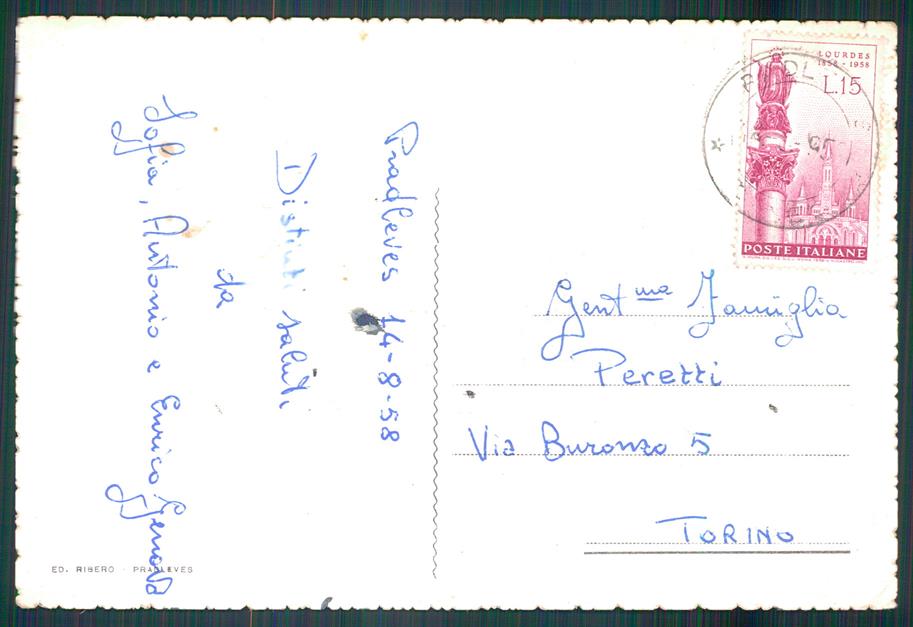 Pradleves 14-8-58
Distinti saluti
da
Sofia, Antonio e Enrico Genova
ED. RIBERO - PRADLEVES
LOURDES
1858 - 1958
L.15
POSTE ITALIANE
Gent ma Famiglia
Peretti
Via Buronzo 5
TORINO